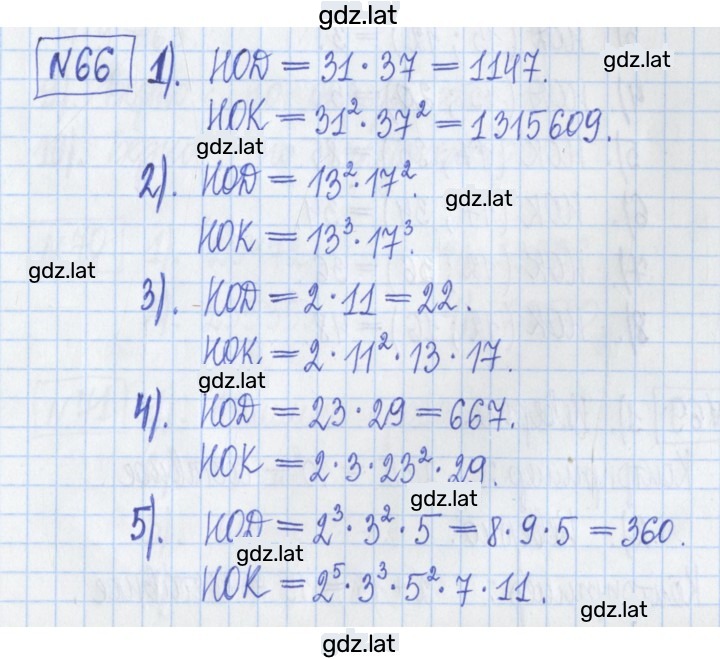 gdz.lat
№66 1). НОД = 31 · 37 = 1147.
gdz.lat
НОК = 31² · 37² = 1315609.
gdz.lat
2). НОД = 13² · 17².
gdz.lat
НОК = 13³ · 17³.
gdz.lat
3). НОД = 2 · 11 = 22.
НОК. = 2 · 11² · 13 · 17.
gdz.lat
4). НОД = 23 · 29 = 667.
НОК = 2 · 3 · 23² · 29.
gdz.lat
5). НОД = 2³ · 3² · 5 = 8 · 9 · 5 = 360.
gdz.lat
НОК = 2⁵ · 3³ · 5² · 7 · 11.
gdz.lat
gdz.lat